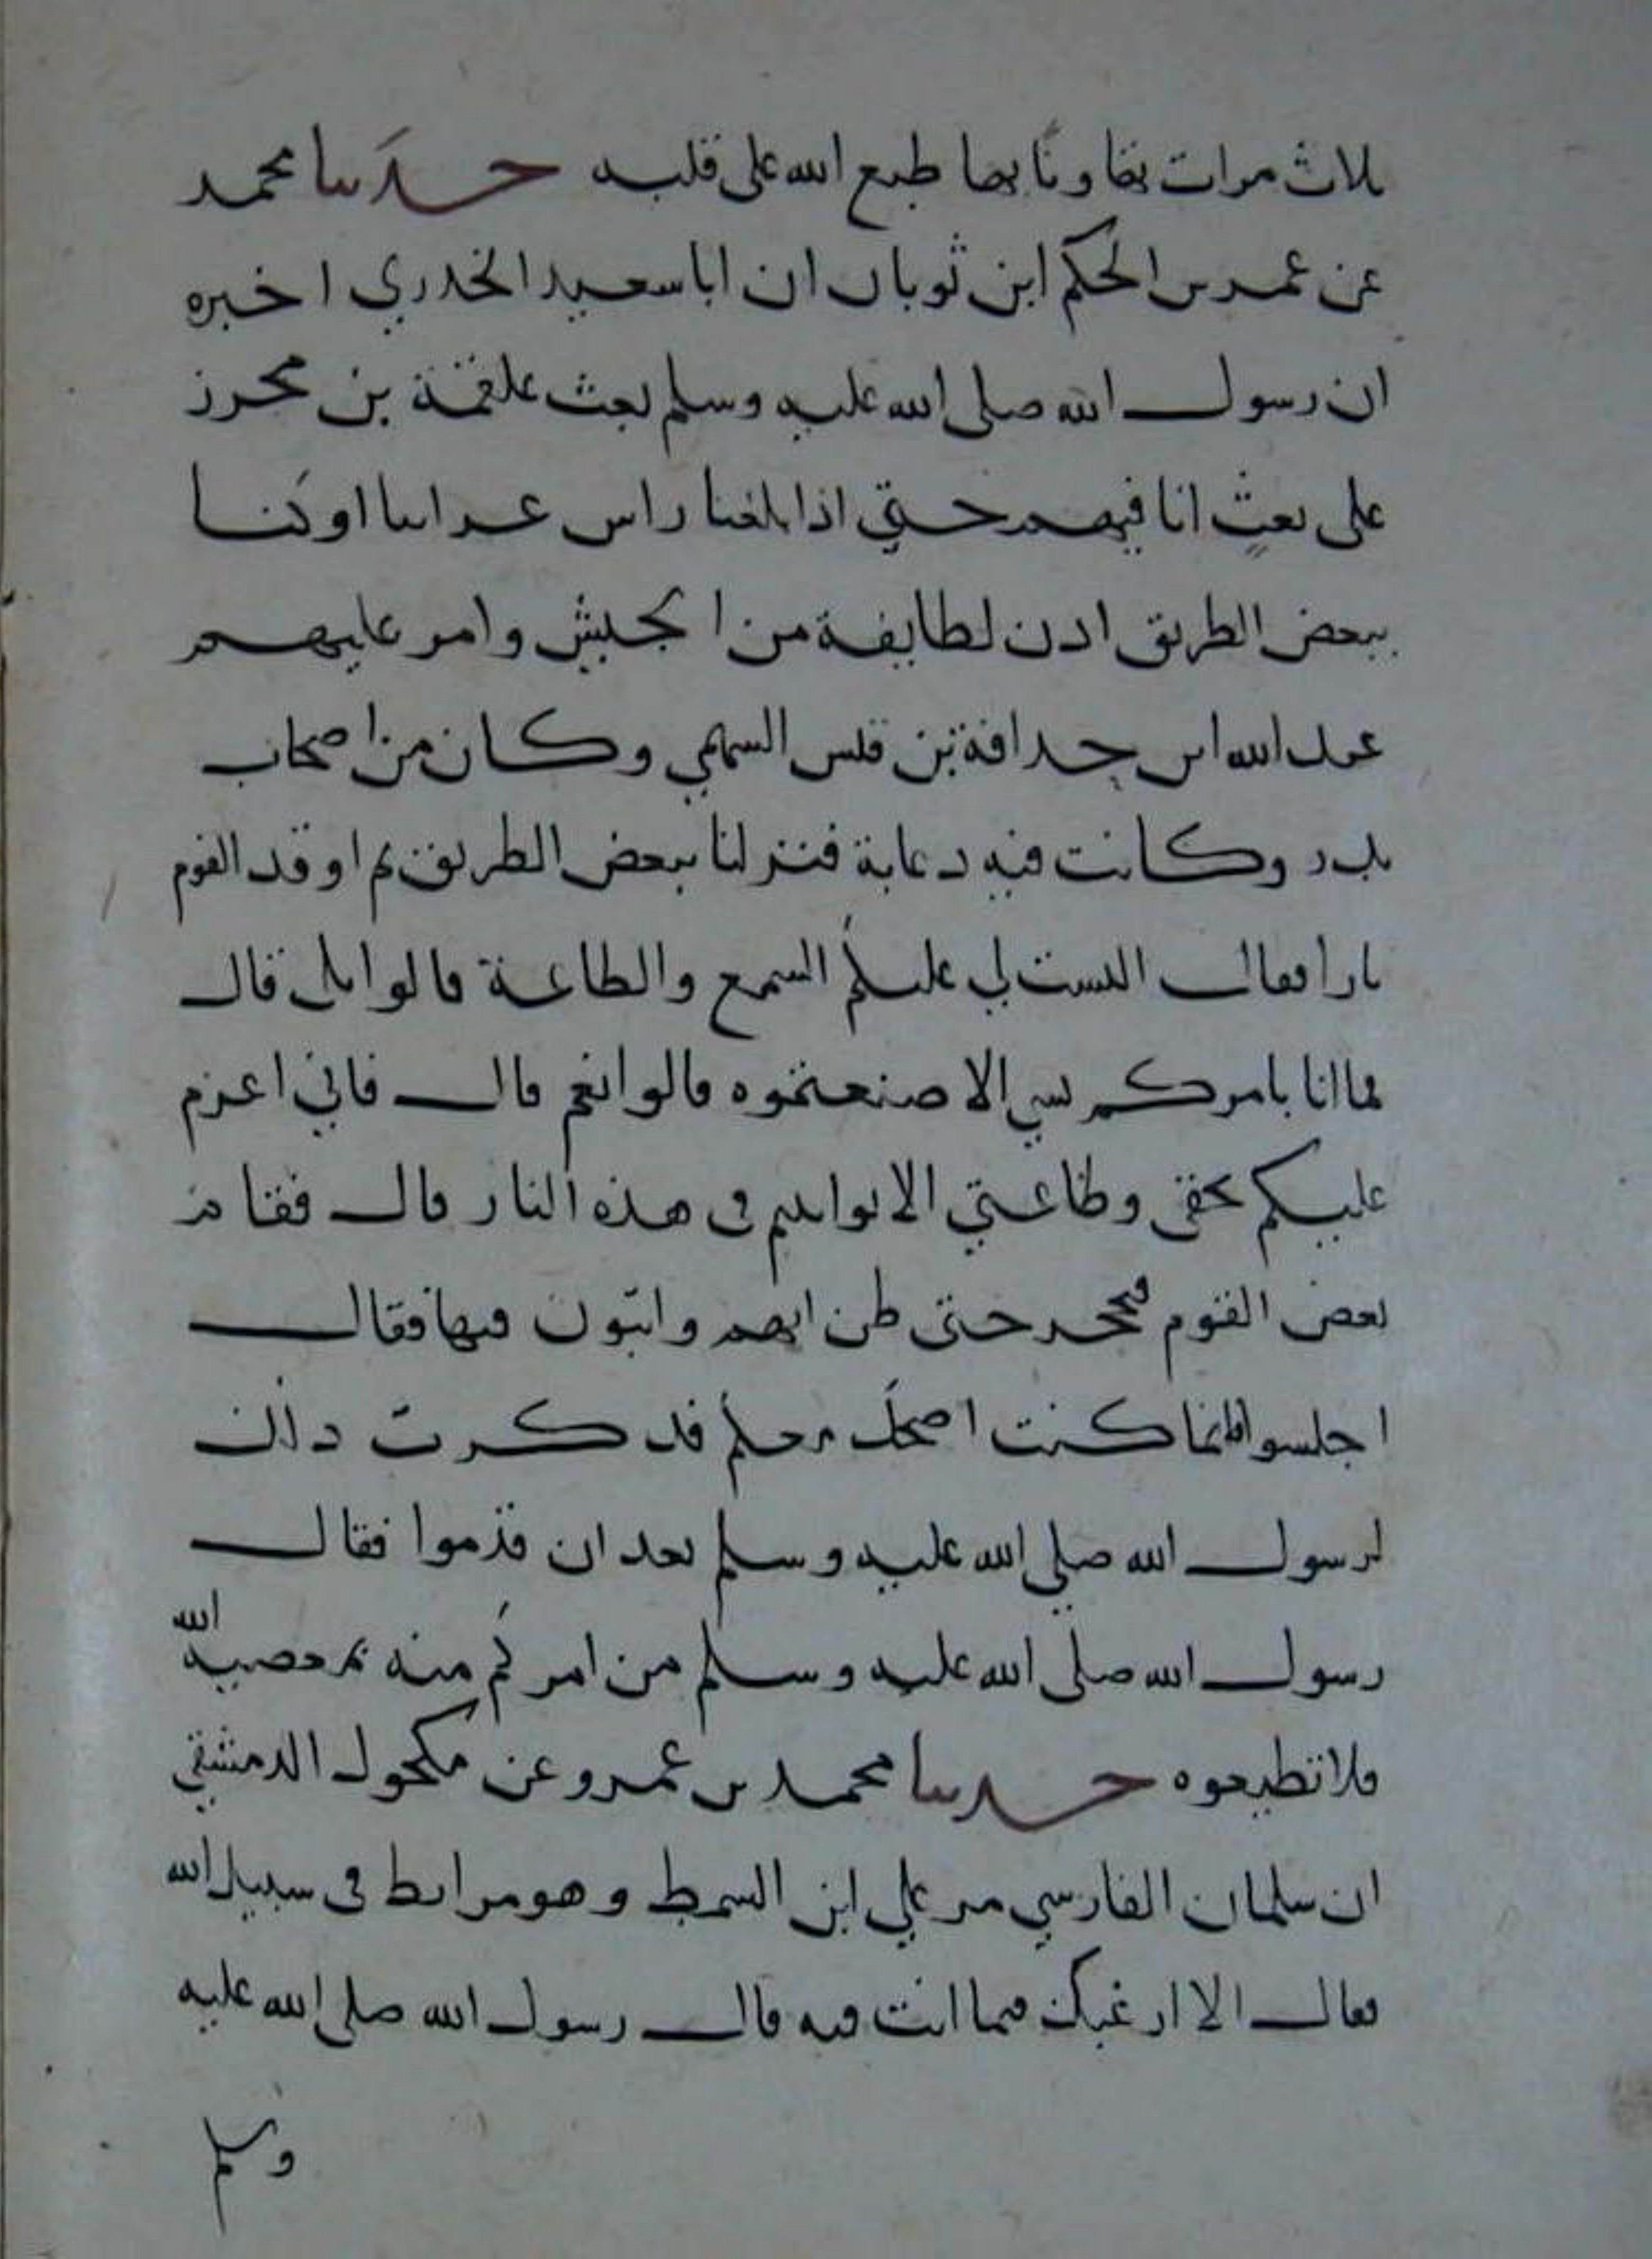 ثلاث مرات تهاونا بها طبع الله على قلبه حدثنا محمد
عن عمر بن الحكم ابن ثوبان ان ابا سعيد الخدري اخبره
ان رسول الله صلى الله عليه وسلم بعث علقمة بن محرز
على بعث انا فيهم حتي اذا بلغنا راس عراسا او كنا
ببعض الطريق اذن لطايفة من الجيش وامر عليهم
عبد الله ابن حذافة بن قيس السهمي وكان من اصحاب
بدر وكانت فيه دعابة فنزلنا ببعض الطريق ثم اوقد القوم
نارا فقال اليست لي عليكم السمع والطاعة قالوا بلى قال
فما انا بامركم بشي الا صنعتموه قالوا نعم قال فاني اعزم
عليكم بحقي وطاعتي الا تواثبتم في هذه النار قال فقام
بعض القوم فتحجز حتى ظن انهم واثبون فيها فقال
اجلسوا فانما كنت اضحك معكم فذكرت ذلك
لرسول الله صلي الله عليه وسلم بعد ان قدموا فقال
رسول الله صلى الله عليه وسلم من امركم منهم بمعصية الله
فلا تطيعوه حدثنا محمد بن عمرو عن مكحول الدمشقي
ان سلمان الفارسي مر علي ابن السمط وهو مرابط في سبيل الله
فقال الا ارغبك فيما انت فيه قال رسول الله صلى الله عليه
وسلم